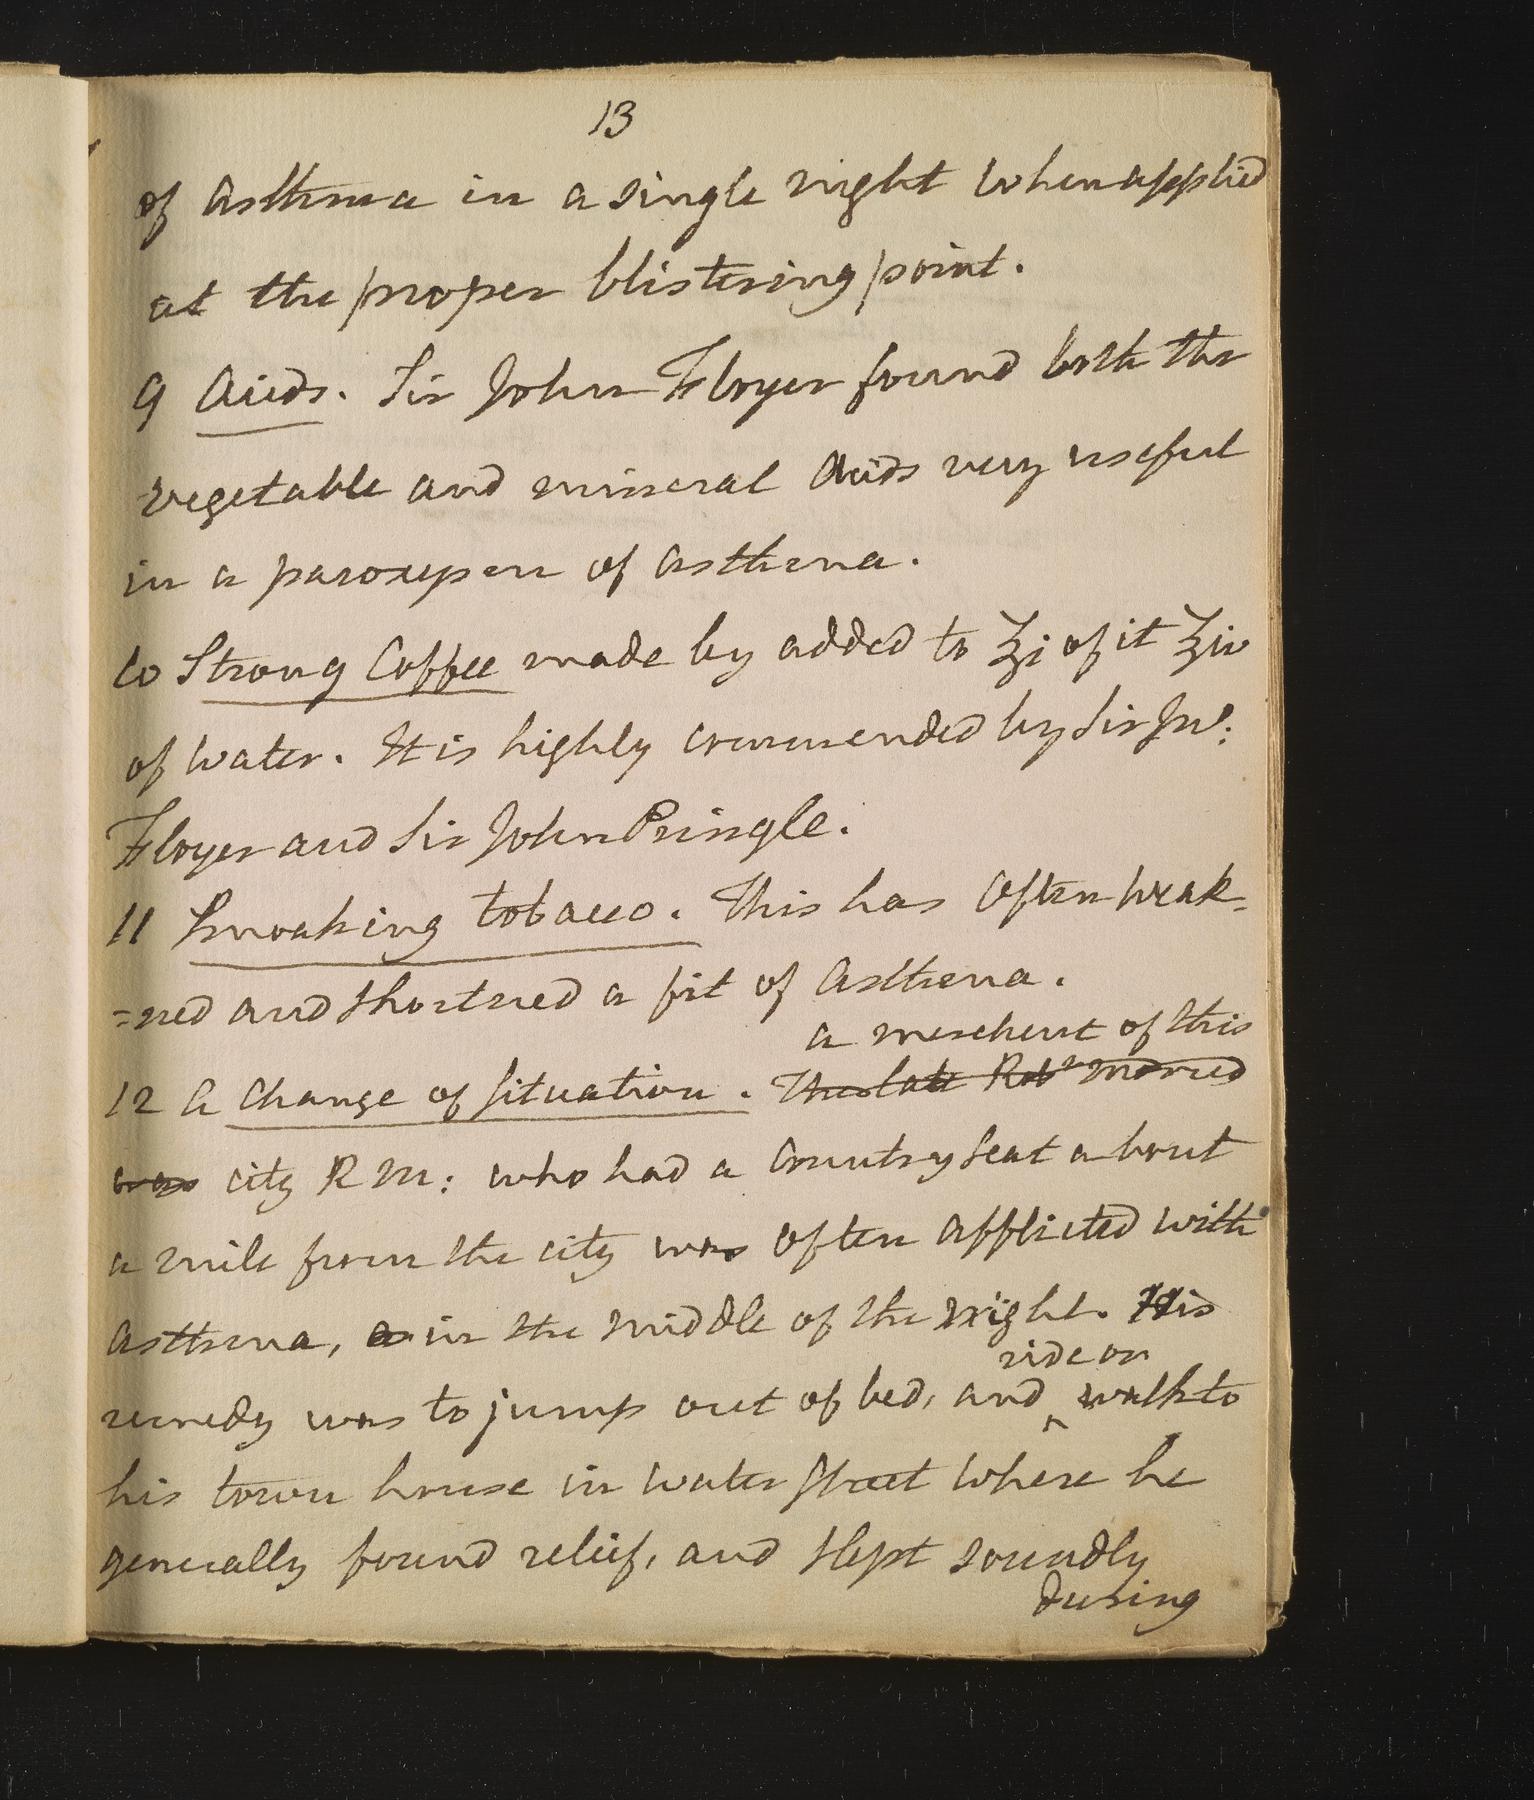 13
of Asthma in a single night when applied
at the proper blistering point.
9 Acids. Sir John Floyer found both the
vegetable and mineral Acids very useful
in a paroxysm of Asthma.
10 Strong Coffee made by added to ℥i of it ℥iv
of water. It is highly commended by Sir Jno:
Floyer and Sir John Pringle.
11 Smoaking tobacco. This has often weak=
=ned and shortned a fit of Asthma.
a merchent of this
12 A Change of situation. The late Robt Morris
was city R M: who had a Country seat about
a mile from the city was often afflicted with
Asthma, in the middle of the night. His
ride or
remedy was to jump out of bed, and ^ walk to
his town house in water street where he
generally found relief, and slept soundly
during